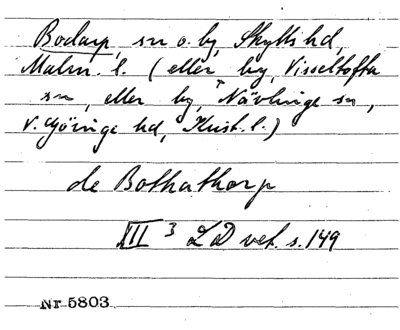 Bodarp, sn o. by, Skytts hd,
Malm. l. (eller by, Visseltofta
sn, eller by, Nävlinge sn,
V. Göinge hd, Krist. l.)
de Bothathorp
III 3 LD vet. s. 149
Nr 5803